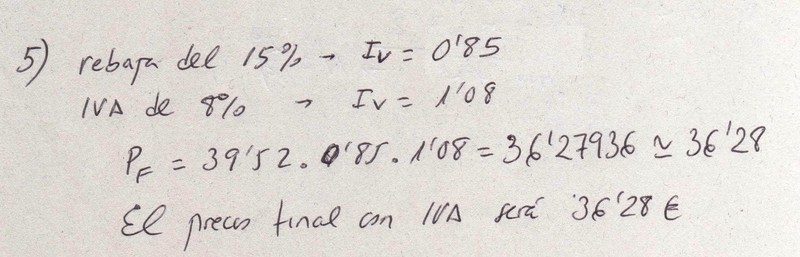 5) rebaja del 15% → Iv = 0'85
IVA de 8% → Iv = 1'08
PF = 39'52 . 0'85 . 1'08 = 36'27936 ≃ 36'28
El precio final con IVA será 36'28 €